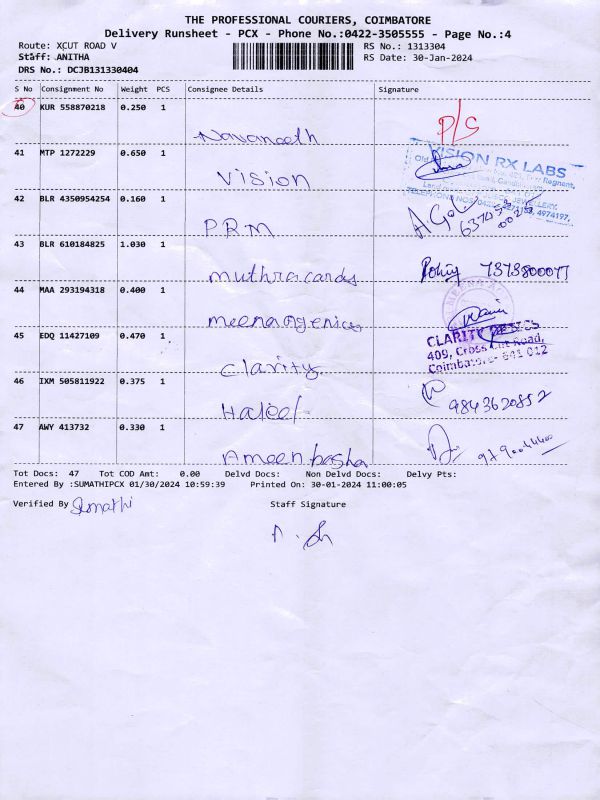 THE PROFESSIONAL COURIERS, COIMBATORE
Delivery Runsheet - PCX - Phone No.:0422-3505555 - Page No.:4
Route: XCUT ROAD V
RS No.: 1313304
Staff: ANITHA
RS Date: 30-Jan-2024
DRS No.: DCJB131330404
S No Consignment No Weight PCS Consignee Details Signature
40 KUR 558870218 0.250 1
Navaneeth P/S
41 MTP 1272229 0.650 1
Vision
VISION RX LABS
42 BLR 4350954254 0.160 1
P.R.M
43 BLR 610184825 1.030 1
muthra cards 7373800077
44 MAA 293194318 0.400 1
meena ogenics
45 EDQ 11427109 0.470 1
Clarity
CLARITY
409, Cross Cut Road,
Coimbatore - 641 012
46 IXM 505811922 0.375 1
Haleef 9843620852
47 AWY 413732 0.330 1
Ameen basha
Tot Docs: 47 Tot COD Amt: 0.00 Delvd Docs: Non Delvd Docs: Delvy Pts:
Entered By :SUMATHIPCX 01/30/2024 10:59:39 Printed On: 30-01-2024 11:00:05
Verified By Sumathi Staff Signature